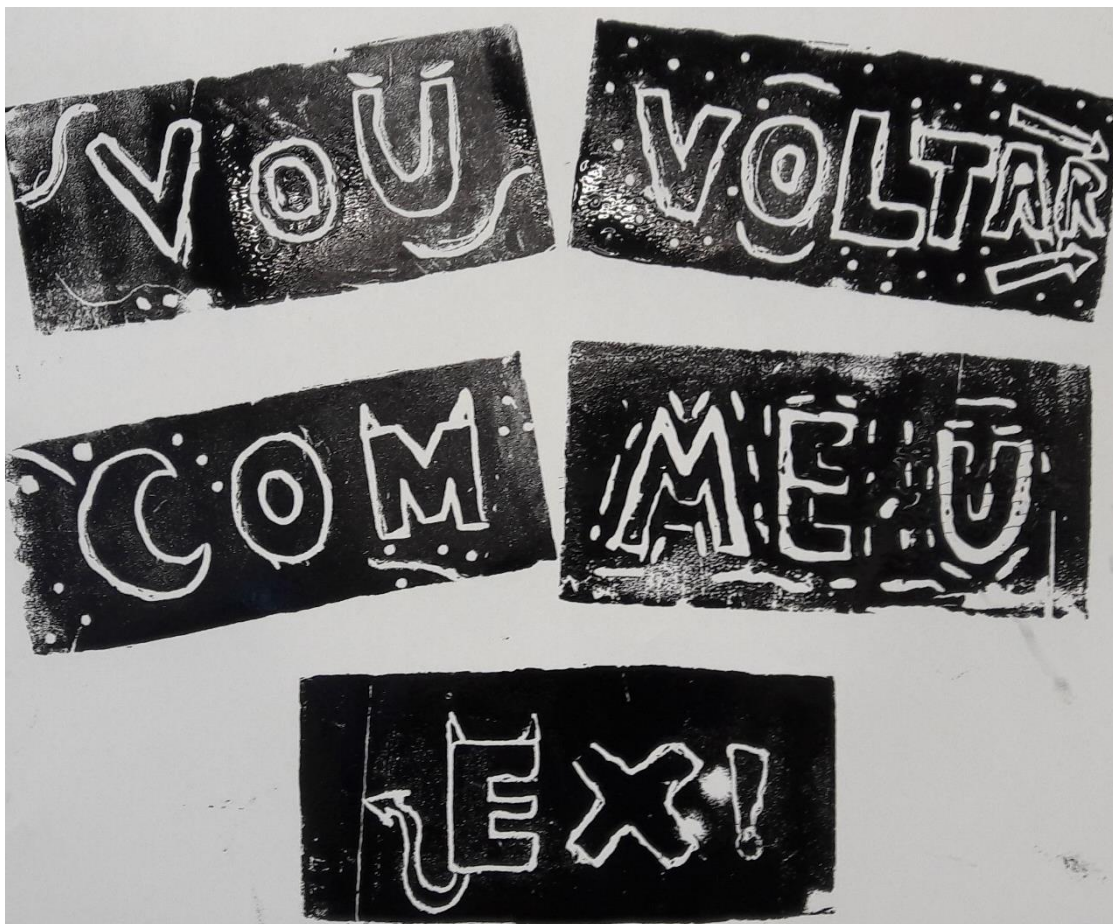 VOU VOLTAR
COM MEU
EX!